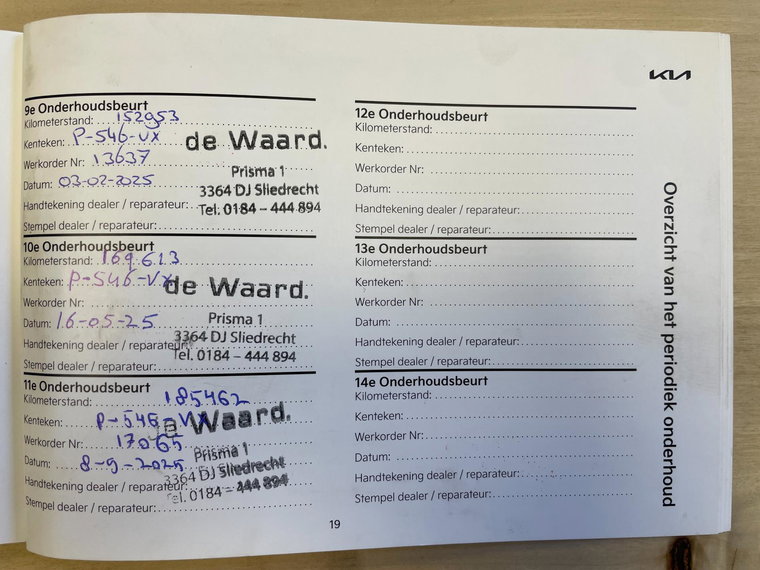 KIA
9e Onderhoudsbeurt
Kilometerstand: 152953
Kenteken: P-546-VX
Werkorder Nr: 13637
Datum: 03-02-2025
Handtekening dealer / reparateur:
Stempel dealer / reparateur:
de Waard.
Prisma 1
3364 DJ Sliedrecht
Tel. 0184 – 444 894
10e Onderhoudsbeurt
Kilometerstand: 169613
Kenteken: P-546-VX
Werkorder Nr:
Datum: 16-05-25
Handtekening dealer / reparateur:
Stempel dealer / reparateur:
de Waard.
Prisma 1
3364 DJ Sliedrecht
Tel. 0184 – 444 894
11e Onderhoudsbeurt
Kilometerstand: 185462
Kenteken: P-546-VX
Werkorder Nr: 17065
Datum: 8-9-2025
Handtekening dealer / reparateur:
Stempel dealer / reparateur:
de Waard.
Prisma 1
3364 DJ Sliedrecht
Tel. 0184 – 444 894
12e Onderhoudsbeurt
Kilometerstand:
Kenteken:
Werkorder Nr:
Datum:
Handtekening dealer / reparateur:
Stempel dealer / reparateur:
13e Onderhoudsbeurt
Kilometerstand:
Kenteken:
Werkorder Nr:
Datum:
Handtekening dealer / reparateur:
Stempel dealer / reparateur:
14e Onderhoudsbeurt
Kilometerstand:
Kenteken:
Werkorder Nr:
Datum:
Handtekening dealer / reparateur:
Stempel dealer / reparateur:
Overzicht van het periodiek onderhoud
19